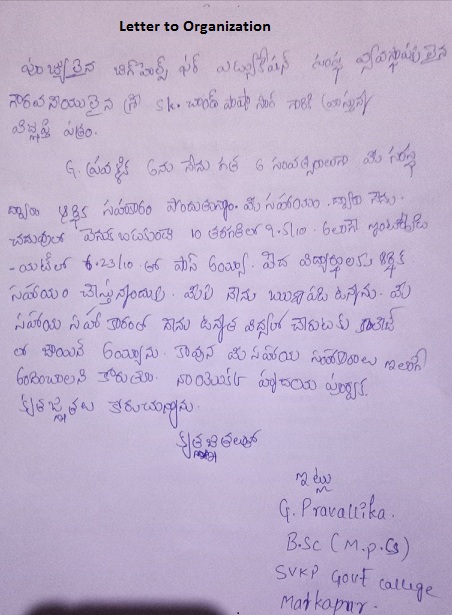 Letter to Organization
పూజ్యులైన బిగ్‌హెల్ప్ ఫర్ ఎడ్యుకేషన్ సంస్థ వ్యవస్థాపకులైన
గౌరవనీయులైన శ్రీ sk. చాంద్ పాషా సార్ గారికి వ్రాస్తున్న
విజ్ఞప్తి పత్రం.
G. ప్రవళ్లిక అను నేను గత 6 సంవత్సరాలుగా మీ సంస్థ
ద్వారా ఆర్థిక సహకారం పొందుతున్నాను. మీ సహాయం ద్వారా నేను
చదువులో వెనుకబడకుండా 10 తరగతిలో 9.5/10 అలాగే ఇంటర్మీడి
-యట్‌లో 8.23/10 తో పాస్ అయ్యా. పేద విద్యార్థులకు ఆర్థిక
సహాయం చేస్తున్నందుకు మీకు నేను ఋణపడి ఉన్నాను. మీ
సహాయ సహకారంతో నేను ఉన్నత విద్యలో చేరుటకు కాలేజీ
లో జాయిన్ అయ్యాను. కావున మీ సహాయ సహకారాలు ఇలాగే
అందించాలని కోరుతూ నా యొక్క హృదయ పూర్వక
కృతజ్ఞతలు తెలుపుచున్నాను.
కృతజ్ఞతలతో
ఇట్లు
G. Pravallika.
B.Sc (M.p.Cs)
SVKP Govt college
Markapur.